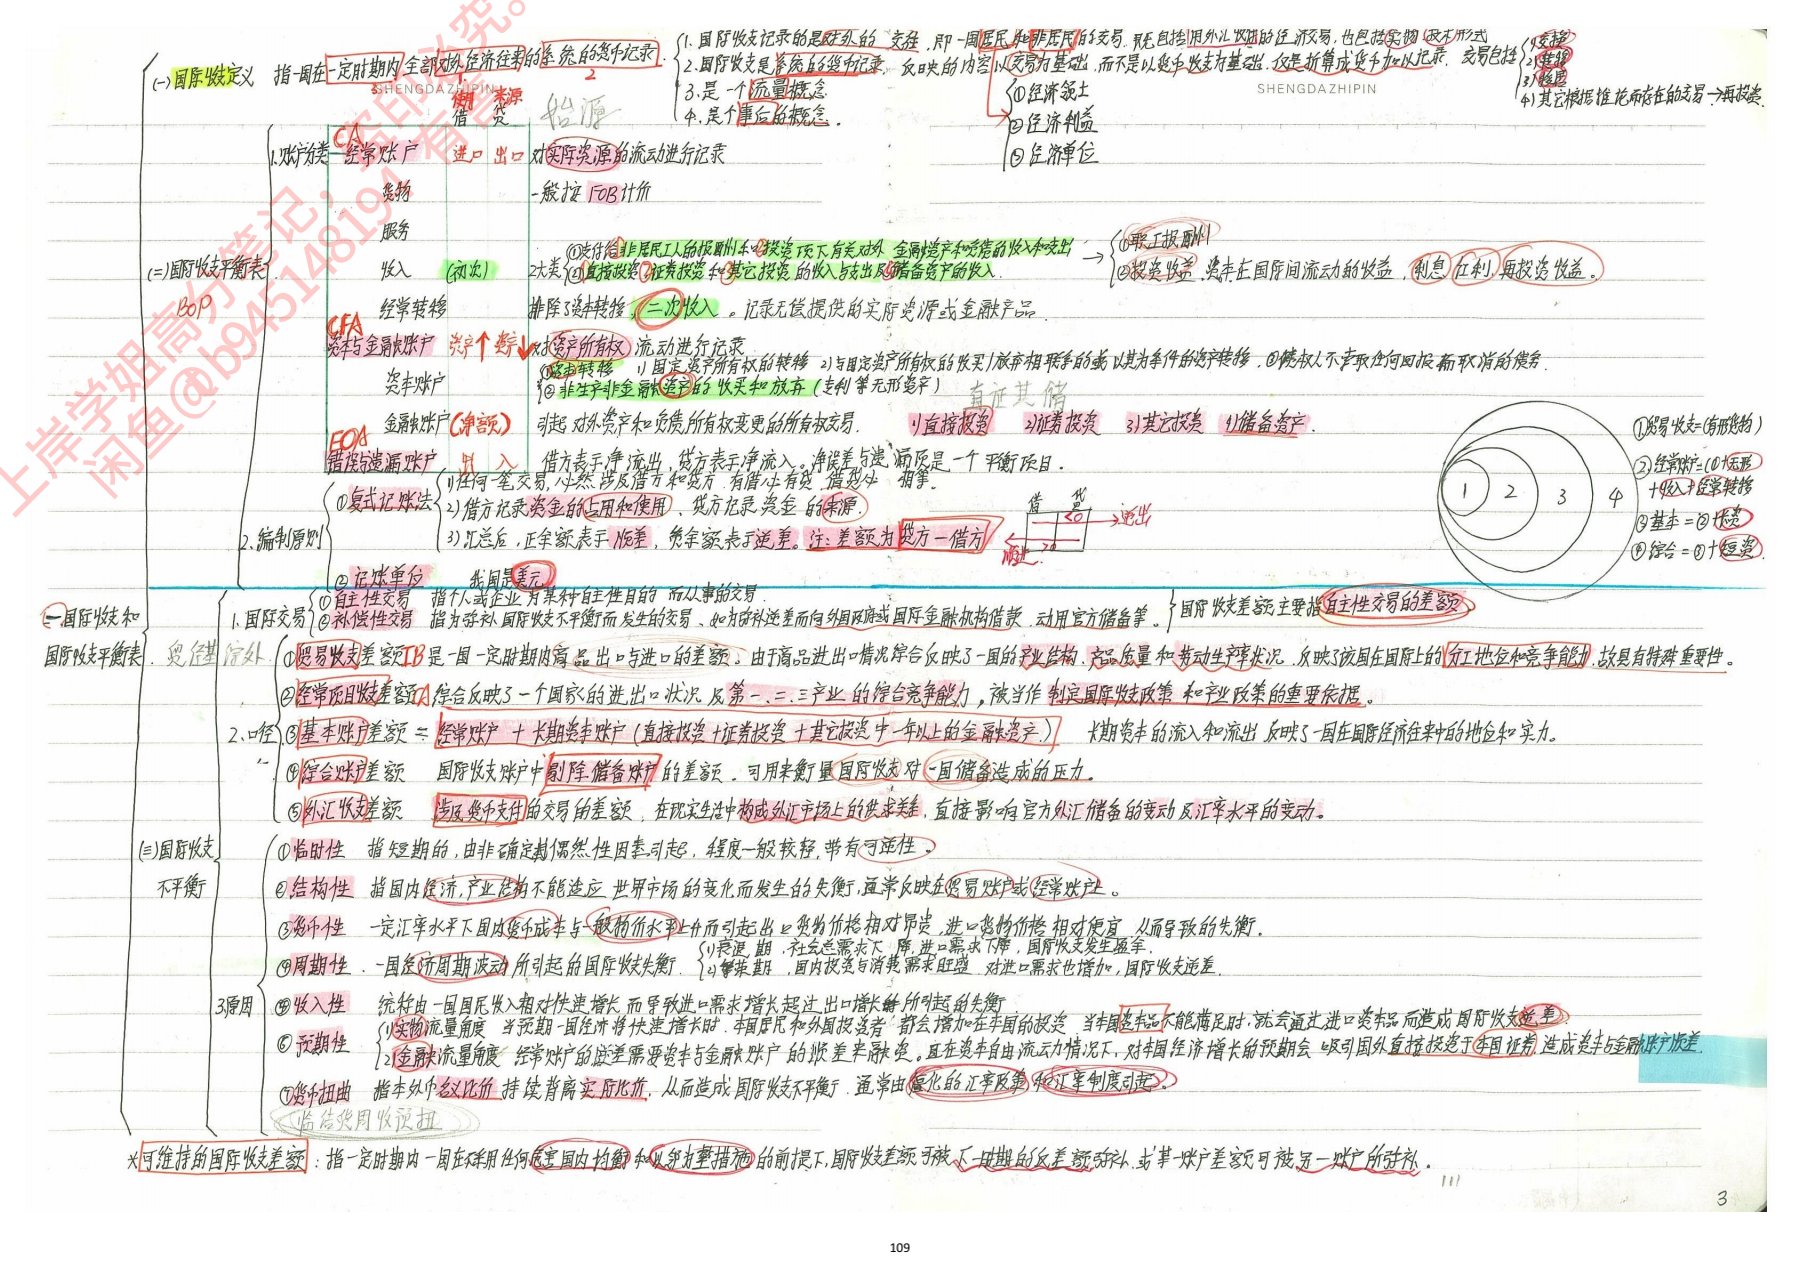 上岸学姐高分笔记，盗印必究。
闲鱼@b945148194 有售
SHENGDAZHIPIN
SHENGDAZHIPIN
一 国际收支和国际收支平衡表
(一)国际收支定义 指一国在一定时期内全部对外经济往来的系统的货币记录.
1. 国际收支记录的是对外的交易, 即一国居民和非居民的交易.
2. 国际收支是系统的货币记录, 反映的内容以交易为基础, 而不是以货币收支为基础.
3. 是一个流量概念.
4. 是个事后的概念.
①经济领土
②经济利益
③经济单位
1)交换
2)转移
3)移居
4)其它根据推论而存在的交易→再投资.
(二)国际收支平衡表
BOP
使用 来源
借 贷
1.账户分类
CA
经常账户 进口 出口 对实际资源的流动进行记录
货物 一般按FOB计价
服务
收入 (初次) 2大类
①支付给非居民工人的报酬和投资项下有关对外金融资产和负债的收入和支出
②直接投资 证券投资和其它投资的收入与支出及储备资产的收入
①职工报酬
②投资收益 资本在国际间流动的收益 利息 红利 再投资收益。
经常转移 排除了资本转移, 二次收入。记录无偿提供的实际资源或金融产品.
CFA
资本与金融账户 资产↑ 资产↓ 对资产所有权流动进行记录
资本账户
①资本转移 1)固定资产所有权的转移 2)与固定资产所有权的收买/放弃相联系的或以其为条件的资产转移 ③债权人不索取任何回报而取消的债务.
②非生产非金融资产的收买和放弃(专利等无形资产)
直证其储
金融账户(净额) 引起对外资产和负债所有权变更的所有权交易. 1)直接投资 2)证券投资 3)其它投资 4)储备资产.
EOA
错误与遗漏账户 出 入 借方表示净流出, 贷方表示净流入。净误差与遗漏项是一个平衡项目.
2.编制原则
①复式记账法
1)任何一笔交易, 必然涉及借方和贷方, 有借必有贷, 借贷必相等.
2)借方记录资金的占用和使用, 贷方记录资金的来源.
3)汇总后, 正余额表示顺差, 负余额表示逆差。注: 差额为贷方－借方
②记账单位 我国是美元
借 贷
<0 逆出
>0
1 2 3 4
①贸易收支=(有形货物)
②经常账户=①+无形
+收入+经常转移
③基本=②+长资
④综合=③+短资.
(三)国际收支不平衡
1.国际交易
①自主性交易 指个人或企业为某种自主性目的而从事的交易.
②补偿性交易 指为弥补国际收支不平衡而发生的交易、如为弥补逆差而向外国政府或国际金融机构借款, 动用官方储备等。
国际收支差额主要指自主性交易的差额
贸经基综外
2.口径
①贸易收支差额TB 是一国一定时期内商品出口与进口的差额; 由于商品进出口情况综合反映了一国的产业结构、产品质量和劳动生产率状况, 反映了该国在国际上的分工地位和竞争能力, 故具有特殊重要性。
②经常项目收支差额CA 综合反映了一个国家的进出口状况及第一、二、三产业的综合竞争能力, 被当作制定国际收支政策和产业政策的重要依据。
③基本账户差额 = 经常账户 + 长期资本账户(直接投资+证券投资+其它投资中一年以上的金融资产.) 长期资本的流入和流出反映了一国在国际经济往来中的地位和实力。
④综合账户差额 国际收支账户中剔除储备账户的差额, 可用来衡量国际收支对一国储备造成的压力。
⑤外汇收支差额 涉及货币支付的交易的差额, 在现实生活中构成外汇市场上的供求关系, 直接影响官方外汇储备的变动及汇率水平的变动。
3.原因
①临时性 指短期的, 由非确定或偶然性因素引起, 程度一般较轻, 带有可逆性。
②结构性 指国内经济、产业结构不能适应世界市场的变化而发生的失衡, 通常反映在贸易账户或经常账户上。
③货币性 一定汇率水平下国内货币成本与一般物价水平上升而引起出口货物价格相对昂贵, 进口货物价格相对便宜, 从而导致的失衡。
④周期性 一国经济周期波动所引起的国际收支失衡
1)衰退期, 社会总需求下降, 进口需求下降, 国际收支发生盈余.
2)繁荣期, 国内投资与消费需求旺盛, 对进口需求也增加, 国际收支逆差.
⑤收入性 统称由一国国民收入相对快速增长而导致进口需求增长超过出口增长所引起的失衡
⑥预期性
1)实物流量角度 当预期一国经济将快速增长时, 本国居民和外国投资者都会增加在本国的投资, 当本国资本品不能满足时, 就会通过进口资本品而造成国际收支逆差.
2)金融流量角度 经常账户的逆差需要资本与金融账户的顺差来融资。且在资本自由流动情况下, 对本国经济增长的预期会吸引国外直接投资于本国证券, 造成资本与金融账户顺差.
⑦货币扭曲 指本外币名义比价持续背离实际比价, 从而造成国际收支不平衡, 通常由僵化的汇率政策和汇率制度引起。
临结货周收预扭
*可维持的国际收支差额: 指一定时期内一国在不采用任何危害国内均衡和以邻为壑措施的前提下, 国际收支差额可被下一时期的反差额弥补, 或某一账户差额可被另一账户所弥补。
3
109